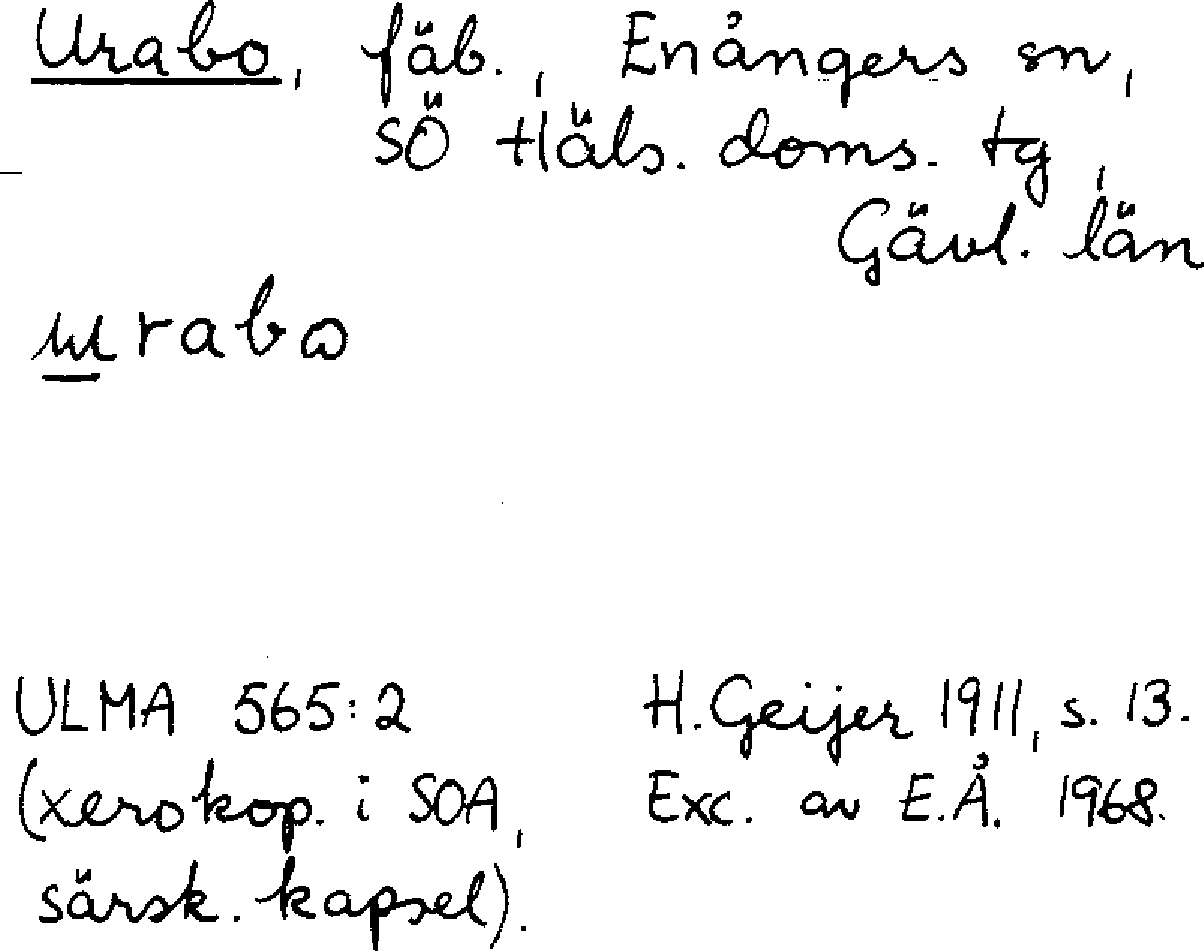 Urabo, fäb., Enångers sn,
SÖ Häls. doms. tg,
Gävl. län
ɯrabɷ
ULMA 565:2
(xerokop. i SOA,
särsk. kapsel).
H. Geijer 1911, s. 13.
Exc. av E.Å. 1968.